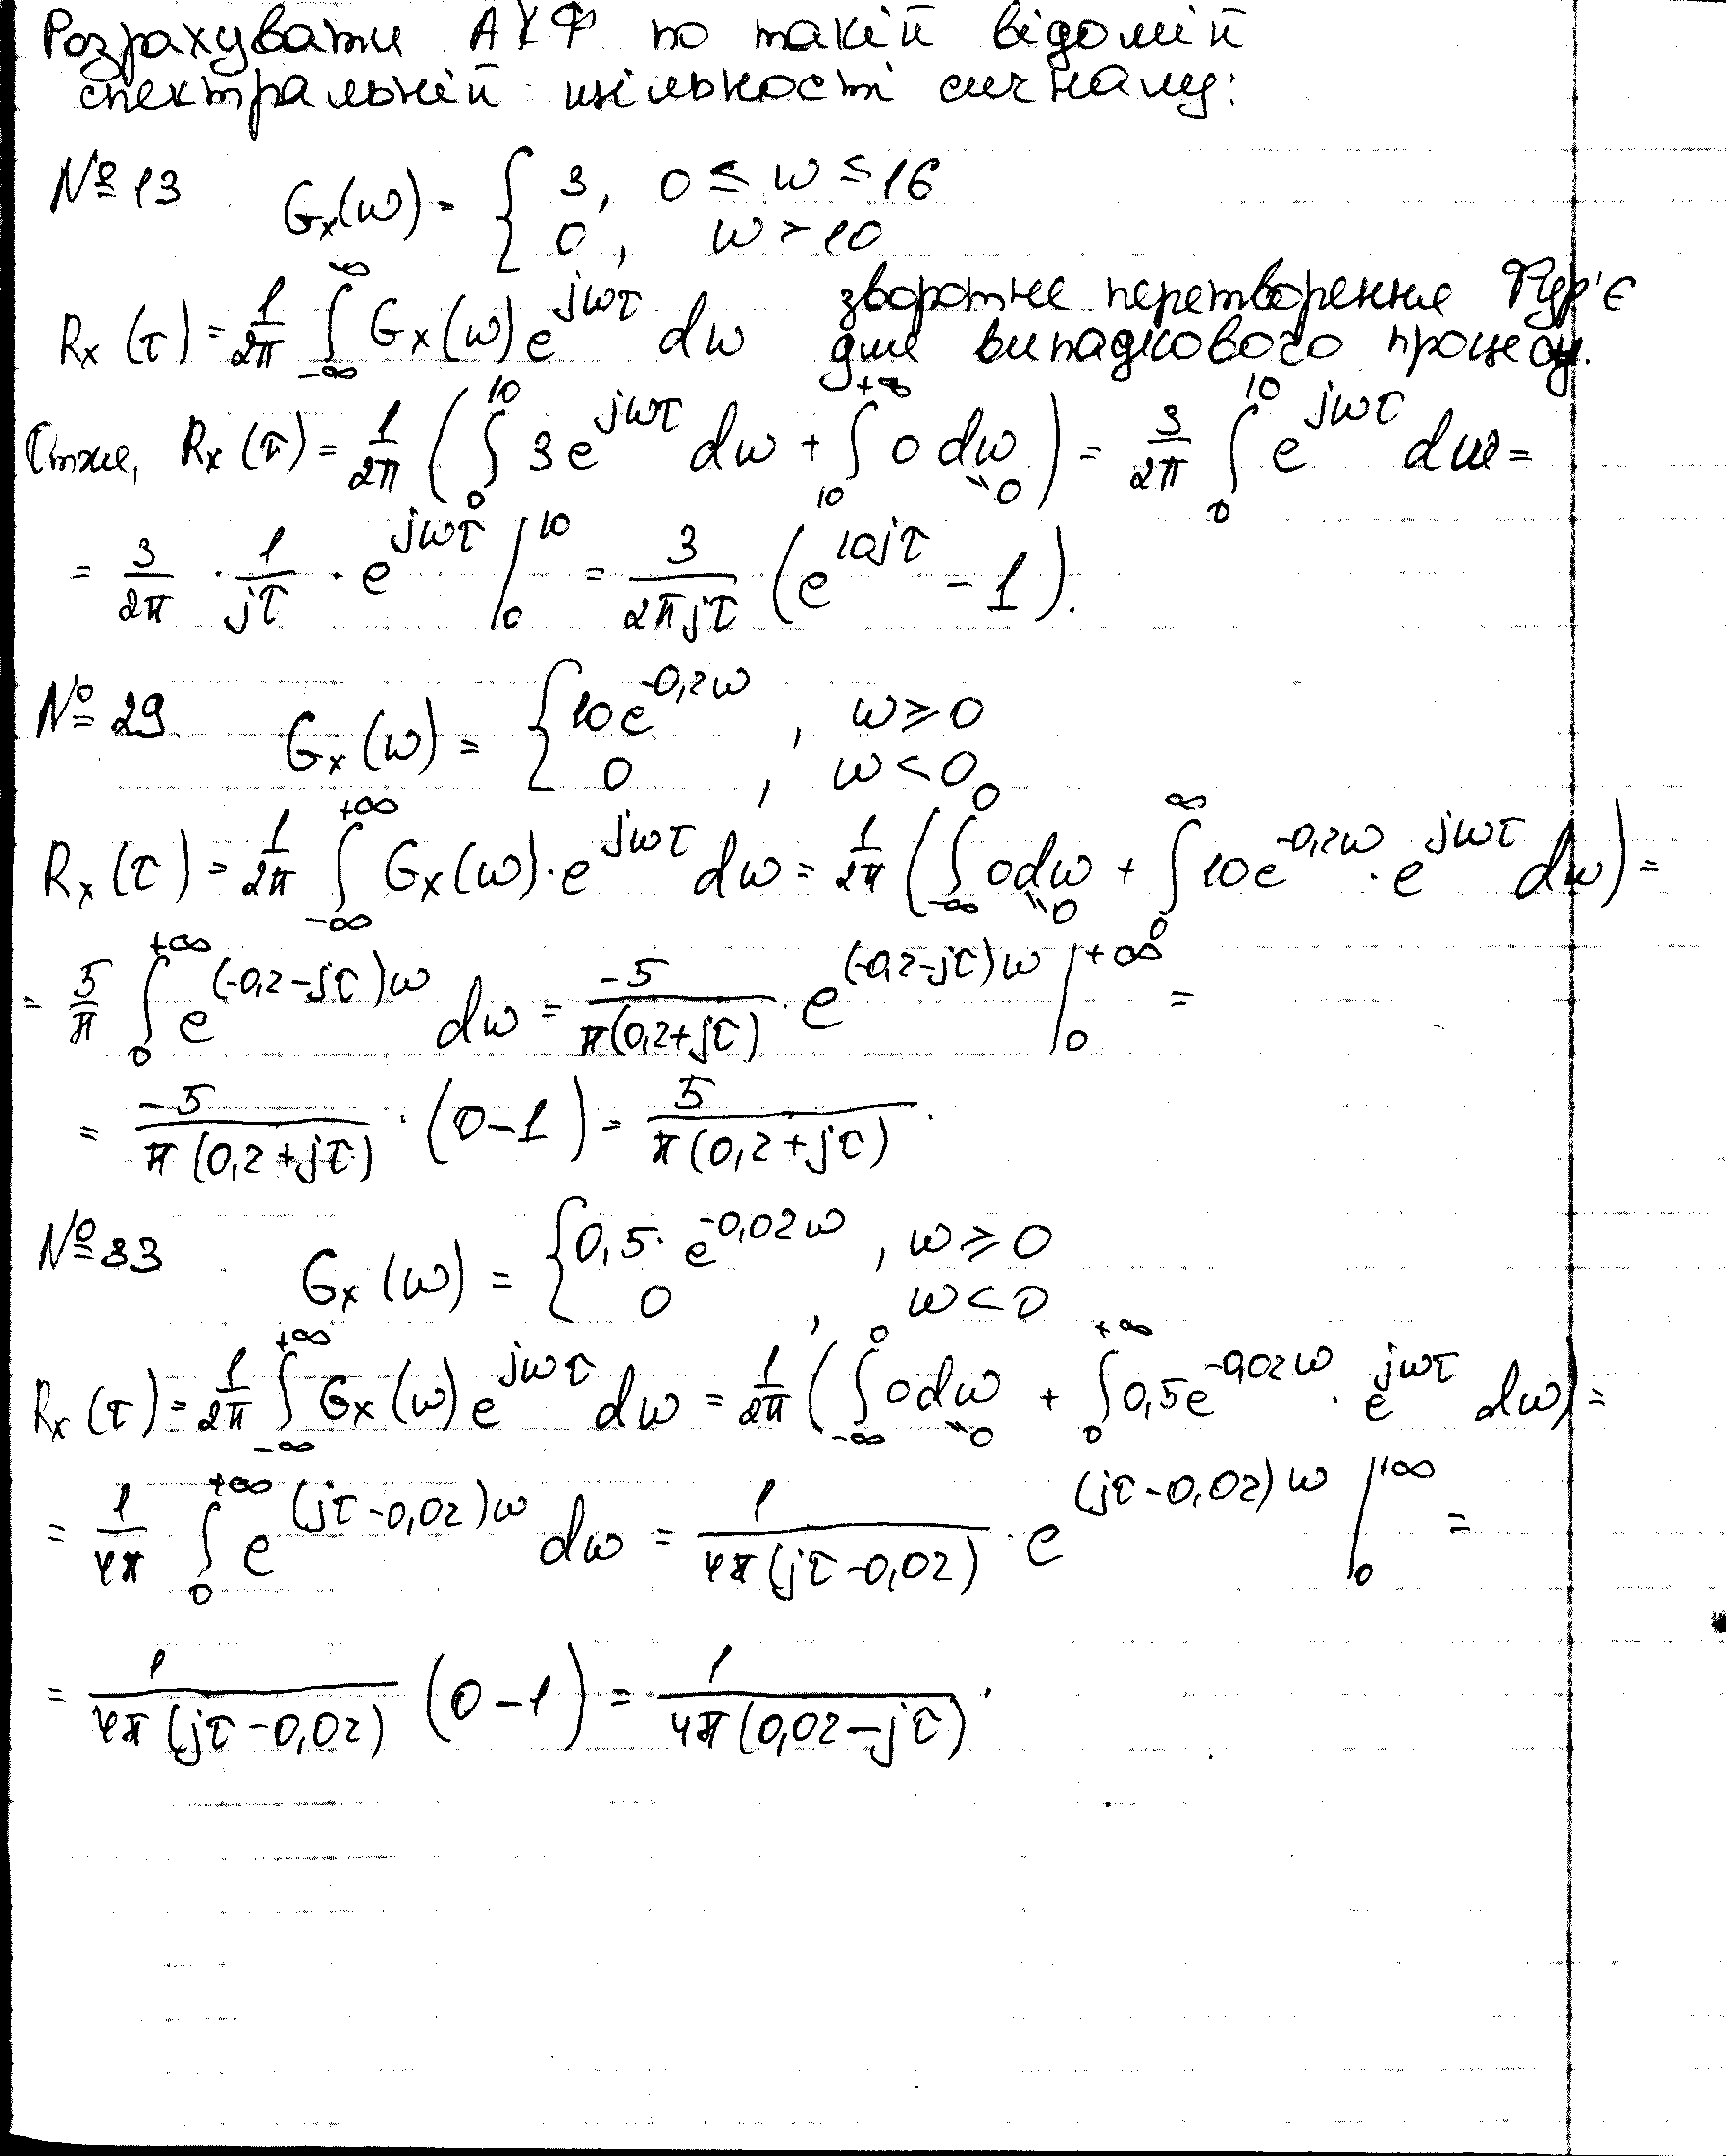 Розрахувати АКФ по такій відомій
спектральній щільності сигналу:
№13 Gx(ω) = { 3, 0 ≤ ω ≤ 16
0, ω > 10
Rx(τ) = 1/2π ∫_{-∞}^{∞} Gx(ω) e^{jωτ} dω зворотнє перетворення Фур'є
для випадкового процесу.
Отже, Rx(τ) = 1/2π ( ∫_0^{10} 3e^{jωτ} dω + ∫_{10}^{+∞} 0 dω "0 ) = 3/2π ∫_0^{10} e^{jωτ} dω =
= 3/2π · 1/jτ · e^{jωτ} |_0^{10} = 3/2πjτ (e^{10jτ} - 1).
№29 Gx(ω) = { 10e^{-0,2ω}, ω ≥ 0
0, ω < 0
Rx(τ) = 1/2π ∫_{-∞}^{+∞} Gx(ω)·e^{jωτ} dω = 1/2π ( ∫_{-∞}^0 0dω "0 + ∫_0^∞ 10e^{-0,2ω} · e^{jωτ} dω ) =
= 5/π ∫_0^{+∞} e^{(-0,2-jτ)ω} dω = -5/π(0,2+jτ) · e^{(-0,2-jτ)ω} |_0^{+∞} =
= -5/π(0,2+jτ) · (0-1) = 5/π(0,2+jτ).
№33 Gx(ω) = { 0,5· e^{-0,02ω}, ω ≥ 0
0, ω < 0
Rx(τ) = 1/2π ∫_{-∞}^{+∞} Gx(ω) e^{jωτ} dω = 1/2π ( ∫_{-∞}^0 0dω "0 + ∫_0^{+∞} 0,5e^{-0,02ω} · e^{jωτ} dω ) =
= 1/4π ∫_0^{+∞} e^{(jτ-0,02)ω} dω = 1/4π(jτ-0,02) · e^{(jτ-0,02)ω} |_0^{+∞} =
= 1/4π(jτ-0,02) (0-1) = 1/4π(0,02-jτ).